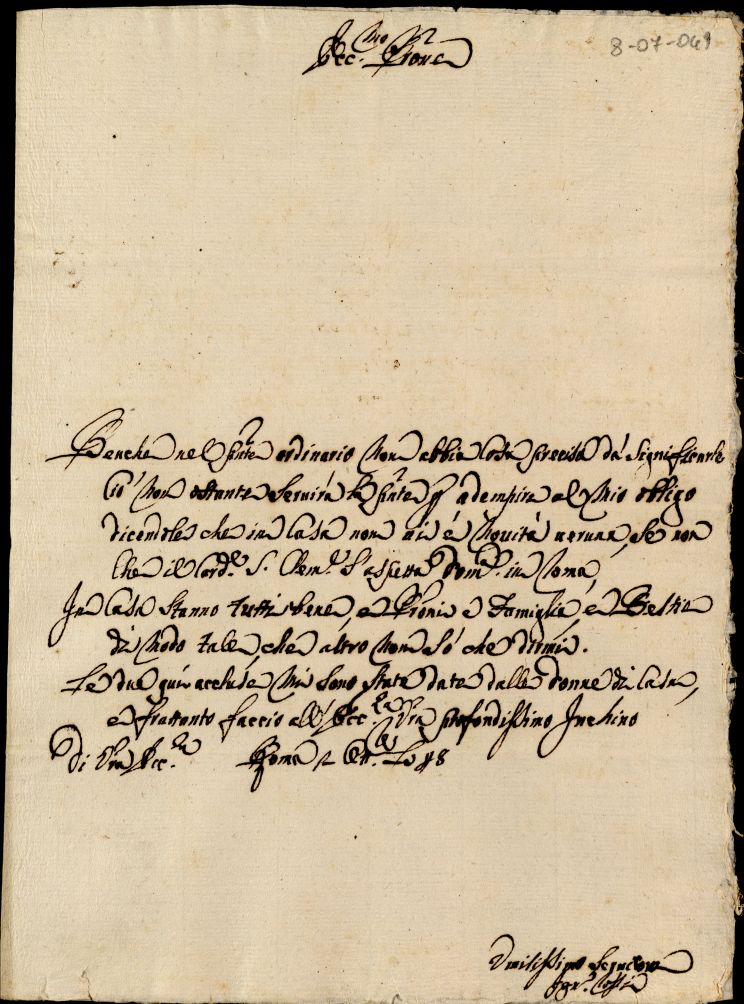 Ecc.mo Prone
8-07-041
Benche nel pnte ordinario non abbia cosa precisa dà significarle
Ciò non ostante servirà la pnte p adempire al mio obligo
dicendole che in casa non vi è novità veruna, se non
che il Card.e S. Clem.e s'aspetta dom.e in Roma,
In casa stanno tutti bene, e Proni e Famiglia, e Bestie
di modo tale, che altro non sò che dirmi.
Le due quì accluse mi sono state date dalle donne di casa,
e frattanto faccio all'Ecc.za Vra profondissimo Inchino
Di Vra Ecc.za Roma 2 Ott.
Umilissimo Servitore